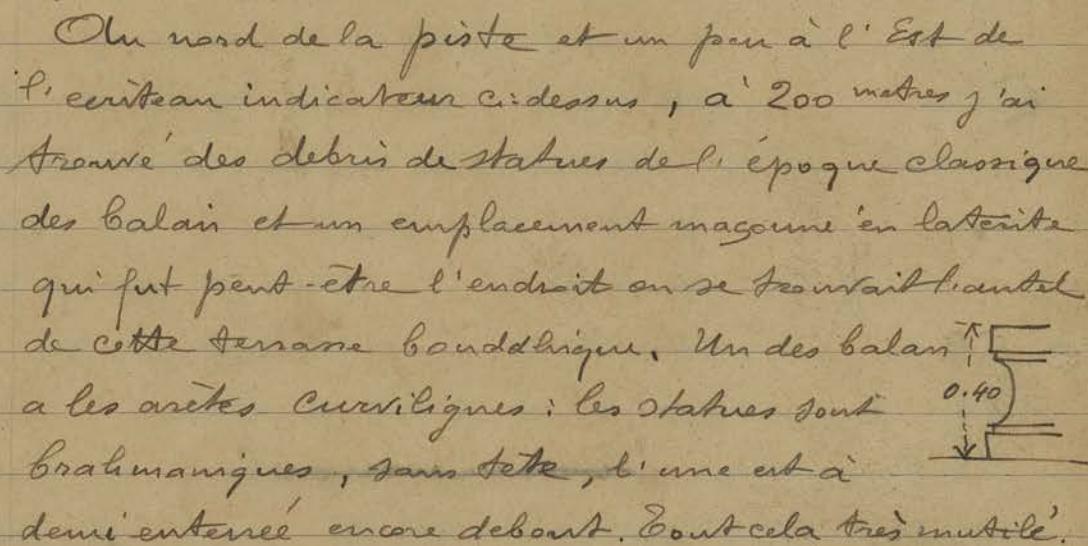 Au nord de la piste et un peu à l'Est de
l'ecriteau indicateur ci-dessus, à 200 metres j'ai
trouvé des debris de statues de l'époque classique
des balan et un emplacement maçonné en laterite
qui fut peut-être l'endroit ou se trouvait l'autel
de cette terrasse bouddhique. Un des balan
a les arètes curvilignes : les statues sont
brahmaniques, sans tête, l'une est à
demi enterreé encore debout. Tout cela très mutilé.
0.40